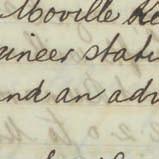 Moville
ineer stati
nd an adv